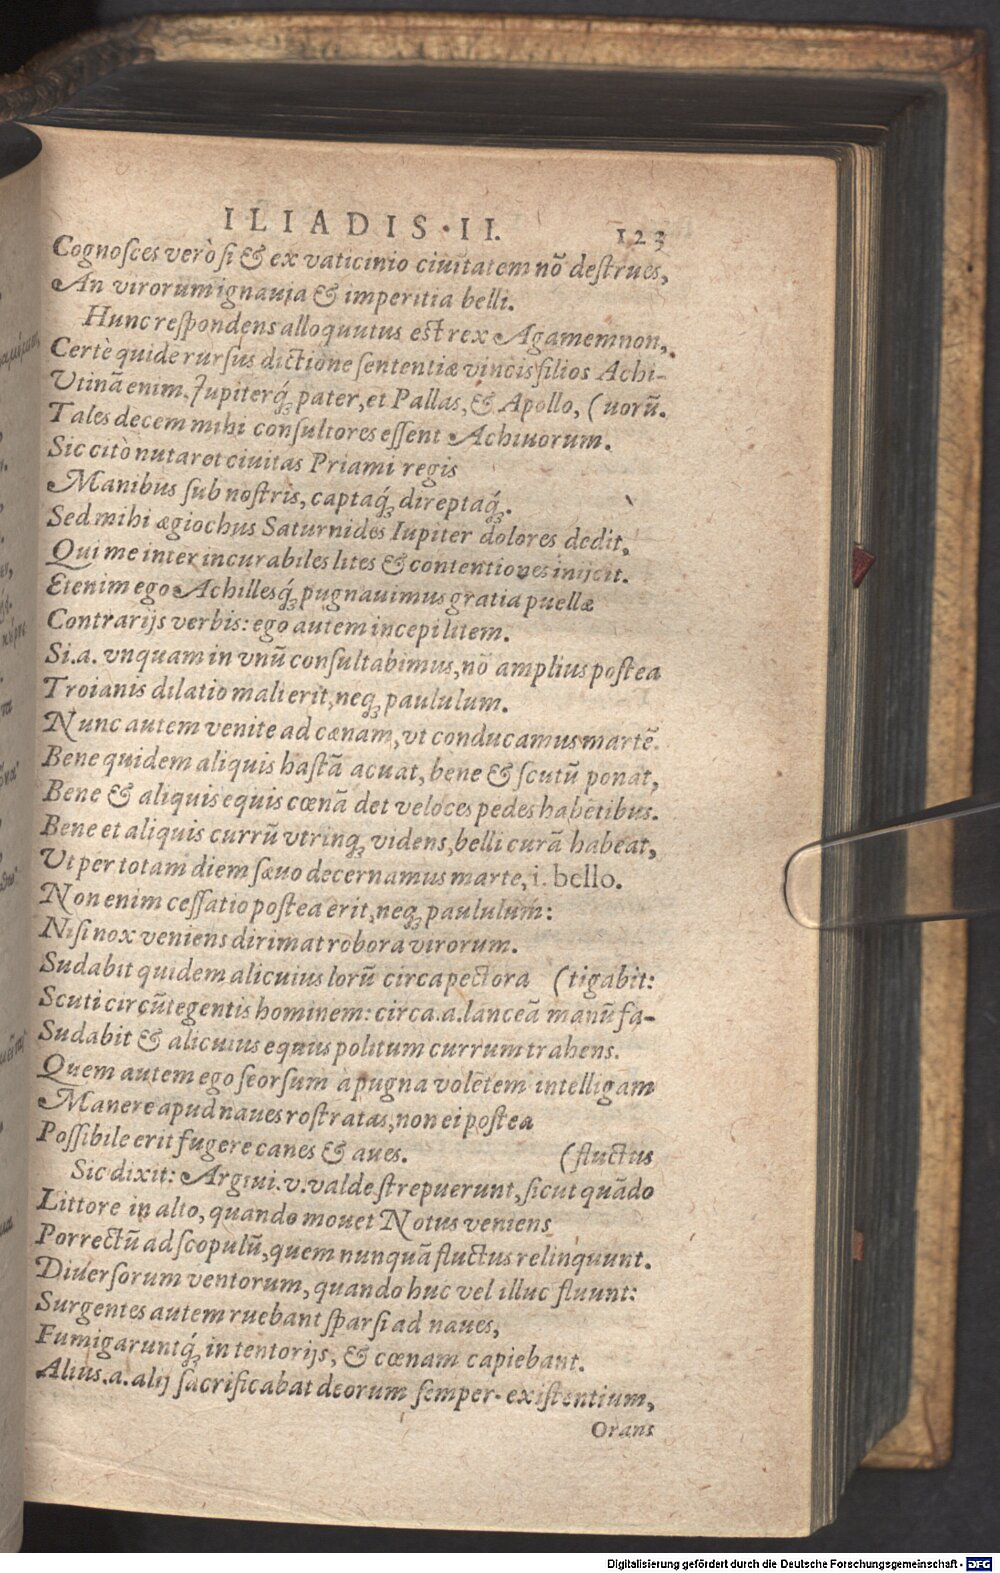 ILIADIS·II. 123
Cognoſces verò ſi & ex vaticinio ciuitatem nō deſtrues,
An virorum ignauia & imperitia belli.
Hunc reſpondens alloquutus eſt rex Agamemnon,
Certè quidē rurſus dictione ſententiæ vincis filios Achi-
Vtinā enim, Iupiterq́; pater, et Pallas, & Apollo, (uorū.
Tales decem mihi conſultores eſſent Achiuorum.
Sic citò nutaret ciuitas Priami regis
Manibus ſub noſtris, captaq́; direptaq́;.
Sed mihi ægiochus Saturnides Iupiter dolores dedit,
Qui me inter incurabiles lites & contentiones inijcit.
Etenim ego Achillesq́; pugnauimus gratia puellæ
Contrarijs verbis: ego autem incepi litem.
Si.a. vnquam in vnū conſultabimus, nō amplius poſtea
Troianis dilatio mali erit, neq; paululum.
Nunc autem venite ad cœnam, vt conducamus martē.
Bene quidem aliquis haſtā acuat, bene & ſcutū ponat,
Bene & aliquis equis cœnā det veloces pedes habētibus.
Bene et aliquis currū vtrinq; videns, belli curā habeat,
Vt per totam diem ſæuo decernamus marte, i. bello.
Non enim ceſſatio poſtea erit, neq; paululum:
Niſi nox veniens dirimat robora virorum.
Sudabit quidem alicuius lorū circa pectora (tigabit:
Scuti circūtegentis hominem: circa.a.lanceā manū fa-
Sudabit & alicuius equus politum currum trahens.
Quem autem ego ſeorſum à pugna volētem intelligam
Manere apud naues roſtratas, non ei poſtea
Poſſibile erit fugere canes & aues. (fluctus
Sic dixit: Argiui.v.valde ſtrepuerunt, ſicut quādo
Littore in alto, quando mouet Notus veniens
Porrectū ad ſcopulū, quem nunquā fluctus relinquunt.
Diuerſorum ventorum, quando huc vel illuc fluunt:
Surgentes autem ruebant ſparſi ad naues,
Fumigaruntq́; in tentorijs, & cœnam capiebant.
Alius.a.alij ſacrificabat deorum ſemper-exiſtentium,
Orans
Digitalisierung gefördert durch die Deutsche Forschungsgemeinschaft - DFG